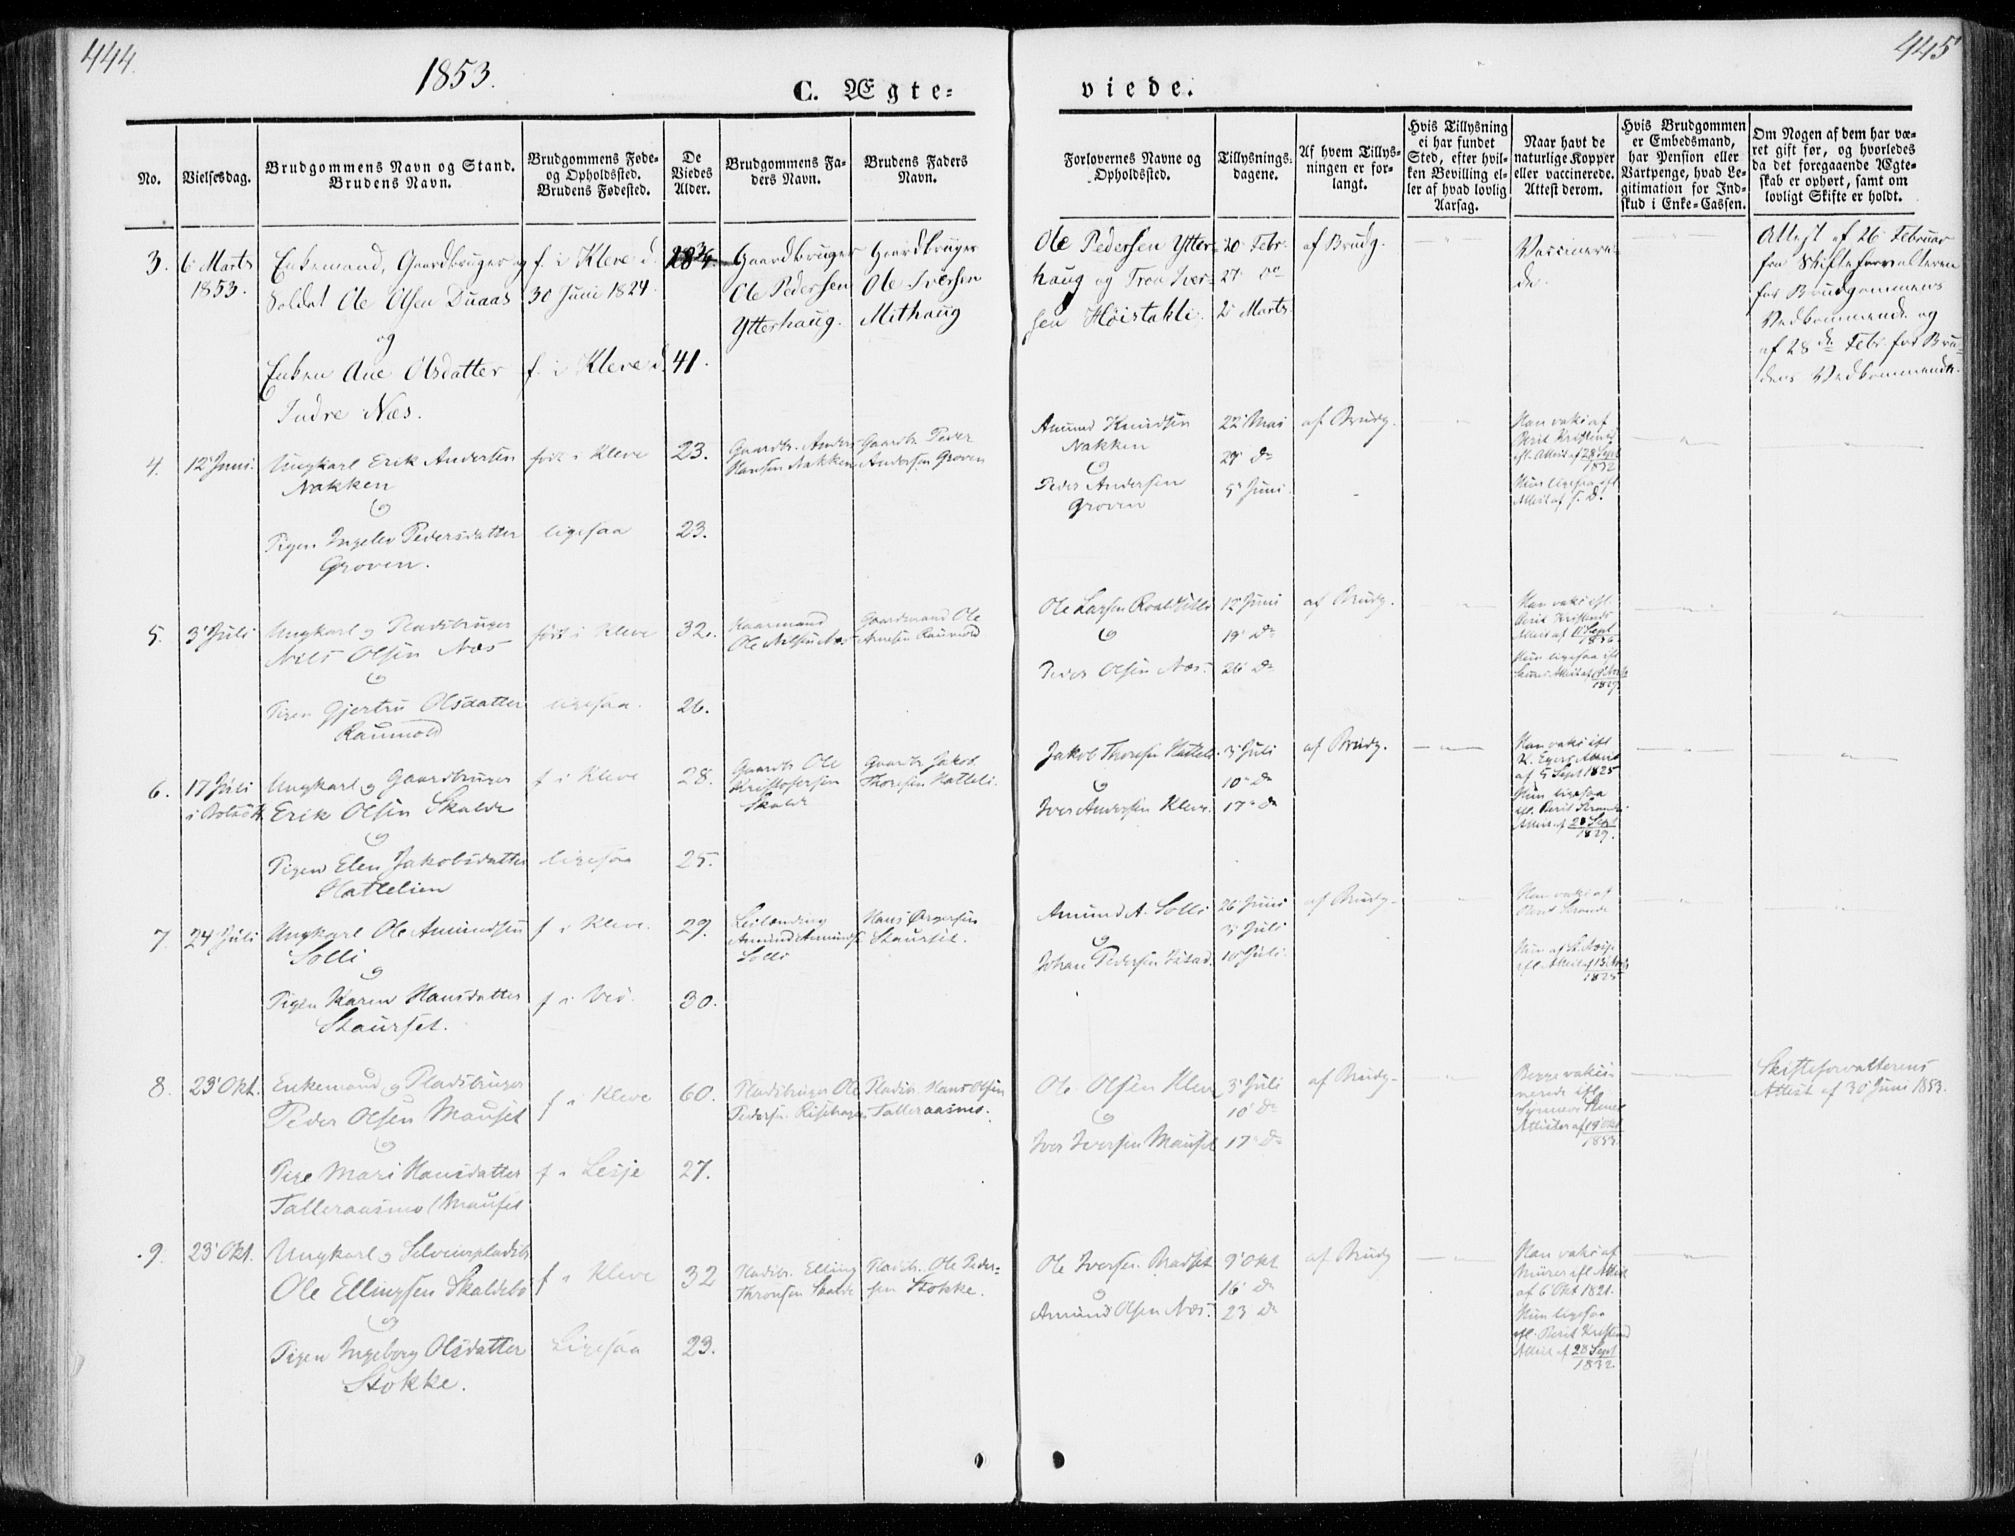 444.
445
1853.
C. Ægte=
viede.
No.
Vielsesdag.
Brudgommens Navn og Stand.
Brudens Navn.
Brudgommens Føde-
og Opholdsted.
Brudens Fødested.
De
Viedes
Alder.
Brudgommens Fa-
ders Navn.
Brudens Faders
Navn.
Forlovernes Navne og
Opholdssted.
Tillysnings-
dagene.
Af hvem Tillys-
ningen er for-
langt.
Hvis Tillysning
ei har fundet
Sted, efter hvil-
ken Bevilling el-
ler af hvad lovlig
Aarsag.
Naar havt de
naturlige Kopper
eller vaccinerede.
Attest derom.
Hvis Brudgommen
er Embedsmand,
har Pension eller
Vartpenge, hvad Le-
gitimation for Ind-
skud i Enke-Cassen.
Om Nogen af dem har væ-
ret gift før, og hvorledes
da det foregaaende Ægte-
skab er ophørt, samt om
lovligt Skifte er holdt.
3.
6 Marts
1853.
Enkemand, Gaardbruger og
Soldat Ole Olsen Duaas
og
Enken Ane Olsdatter
Indre Næs.
f. i Kleve d.
30 Juni 1824.
f. i Kleve d.
41.
Gaardbruger
Ole Pedersen
Ytterhaug.
Gaardbruger
Ole Iversen
Mithaug
Ole Pedersen Ytter-
haug og Tron Iver-
sen Høistakli.
20 Febr.
27 do
2 Marts
af Brudg.
Vaccinere-
de.
Attest af 26 Februar
fra Skifteforvalteren
for Brudgommens
Vedkommende og
af 28de Febr for Bru-
dens Vedkommende.
4.
12 Juni.
Ungkarl Erik Andersen
Nakken
og
Pigen Ingelev Pedersdatter
Groven.
født i Kleve
ligesaa
23.
23.
Gaardbr. Anders
Hansen Nakken
Gaardbr Peder
Andersen Groven
Amund Knudsen
Nakken
og
Peder Andersen
Groven
22 Mai
29 Do
5 Juni
af Brudg.
Han vaks af
Berit Kristines
efl. Attest af 28 Sept
1832
Hun ligesaa efl
Attest af s. D.
5.
3 Juli
Ungkarl og Pladsbruger
Nils Olsen Næs
og
Pigen Gjertru Olsdatter
Raumold
født i Kleve
ligesaa.
32.
26.
Ole Nilsen Næs
Gaardmand Ole
Arnesen Raumold
Ole Larsen
og
Peder Olsen Næs.
12 Juni
19 Do
26 Do
af Brudg.
Han vaks efl.
Attest af 11 Sept
Hun ligesaa efl
1829.
6.
17 Juli
Ungkarl og Gaardbruger
Erik Olsen Skalde
og
Pigen Elen Jakobsdatter
Hattelien
f i Kleve
ligesaa
28.
25.
Gaardbr Ole
Kristofersen
Skalde
Gaardbr Jakob
Thoresen Hatteli.
Jakob Thoresen Hatteli.
og
Iver Andersen Kleve.
3 Juli
10 Do
17 Do
af Brudg.
Han vaks efl
af 5 Sept 1825
Hun ligesaa
Attest af 28 Sept
1829.
7.
24 Juli
Ungkarl Ole Amundsen
Solli
og
Pigen Karen Hansdatter
Staurset.
f i Kleve.
f i Veø.
29.
30.
Leilending
Amund Amunds.
Solli
Staurset.
Amund A. Solli
og
Johan Pedersen
26 Juni
3 Juli
10 Juli.
af Brudg.
Han vaks af
1825
8.
23 Okt.
Enkemand og Pladsbruger
Peder Olsen Mauset
og
Pige Mari Hansdatter
Talleraasmo / Mauset
f i Kleve
f i Lesje
60.
27.
Pladsbruger Ole
Pedersen
Pladsbr. Hans Olsen
Talleraasmo.
Ole Olsen Kleve
og
Iver Iversen Mauset
3 Juli
10 Do
17 Do
af Brudg.
Begge vakci-
nerede efl.
Attester af 19 Okt
1853.
Skifteforvalterens
Attest af 30 Juni 1853.
9.
23 Okt.
Ungkarl og Selveierpladsbr
Ole Ellingsen Skaldebø
og
Pigen Ingeborg Olsdatter
Stokke.
f i Kleve
Ligesaa
32
23.
Pladsbr. Elling
Thronsen Skalde
Pladsbr. Ole Peder-
sen Stokke.
Ole Iversen Mauset
og
Amund Olsen Næs.
9 Okt
16 Do
23 Do
af Brudg
Han vaks af
af 6 Okt 1821.
Hun ligesaa
efl. Berit Kristines
Attest af 28 Sept
1832.